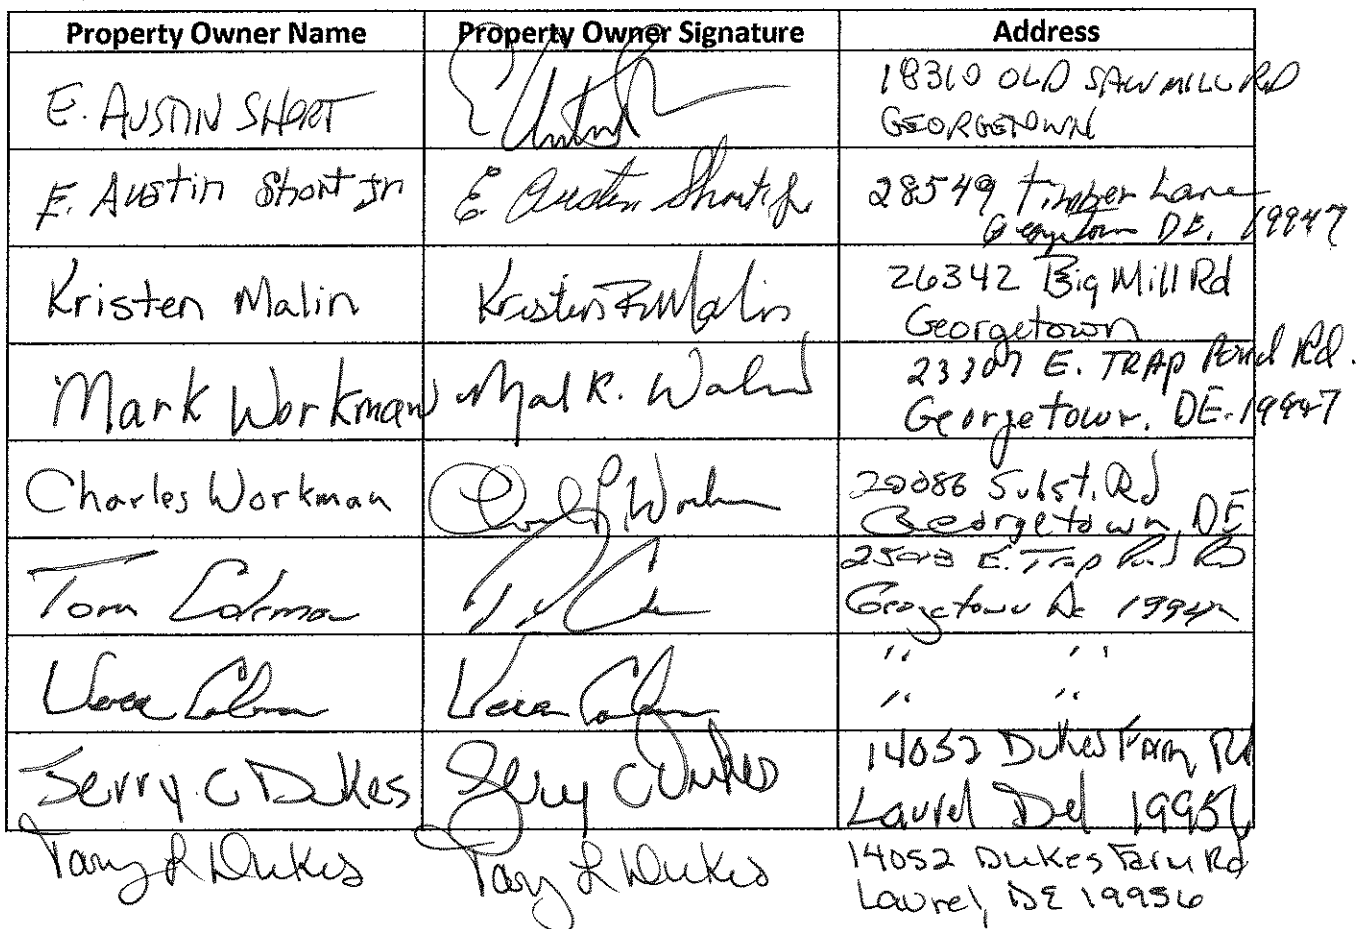 Property Owner Name Property Owner Signature Address
E. AUSTIN SHORT 18310 OLD SAWMILL RD
GEORGETOWN
E. Austin Short Jr E. Austin Short Jr 28549 Timber Lane
Georgetown DE. 19947
Kristen Malin Kristen R Malin 26342 Big Mill Rd
Georgetown
Mark Workman Mark R. 23307 E. TRAP Pond Rd.
Georgetown, DE. 19947
Charles Workman 20086 Subst. Rd
Georgetown, DE
Tom Coleman E. Trap Pond Rd
Georgetown De 19947
Vera Coleman Vera Coleman " "
" "
Jerry C Dukes Jerry C Dukes 14052 Dukes Farm Rd
Laurel Del 19956
L Dukes L Dukes 14052 Dukes Farm Rd
Laurel, DE 19956